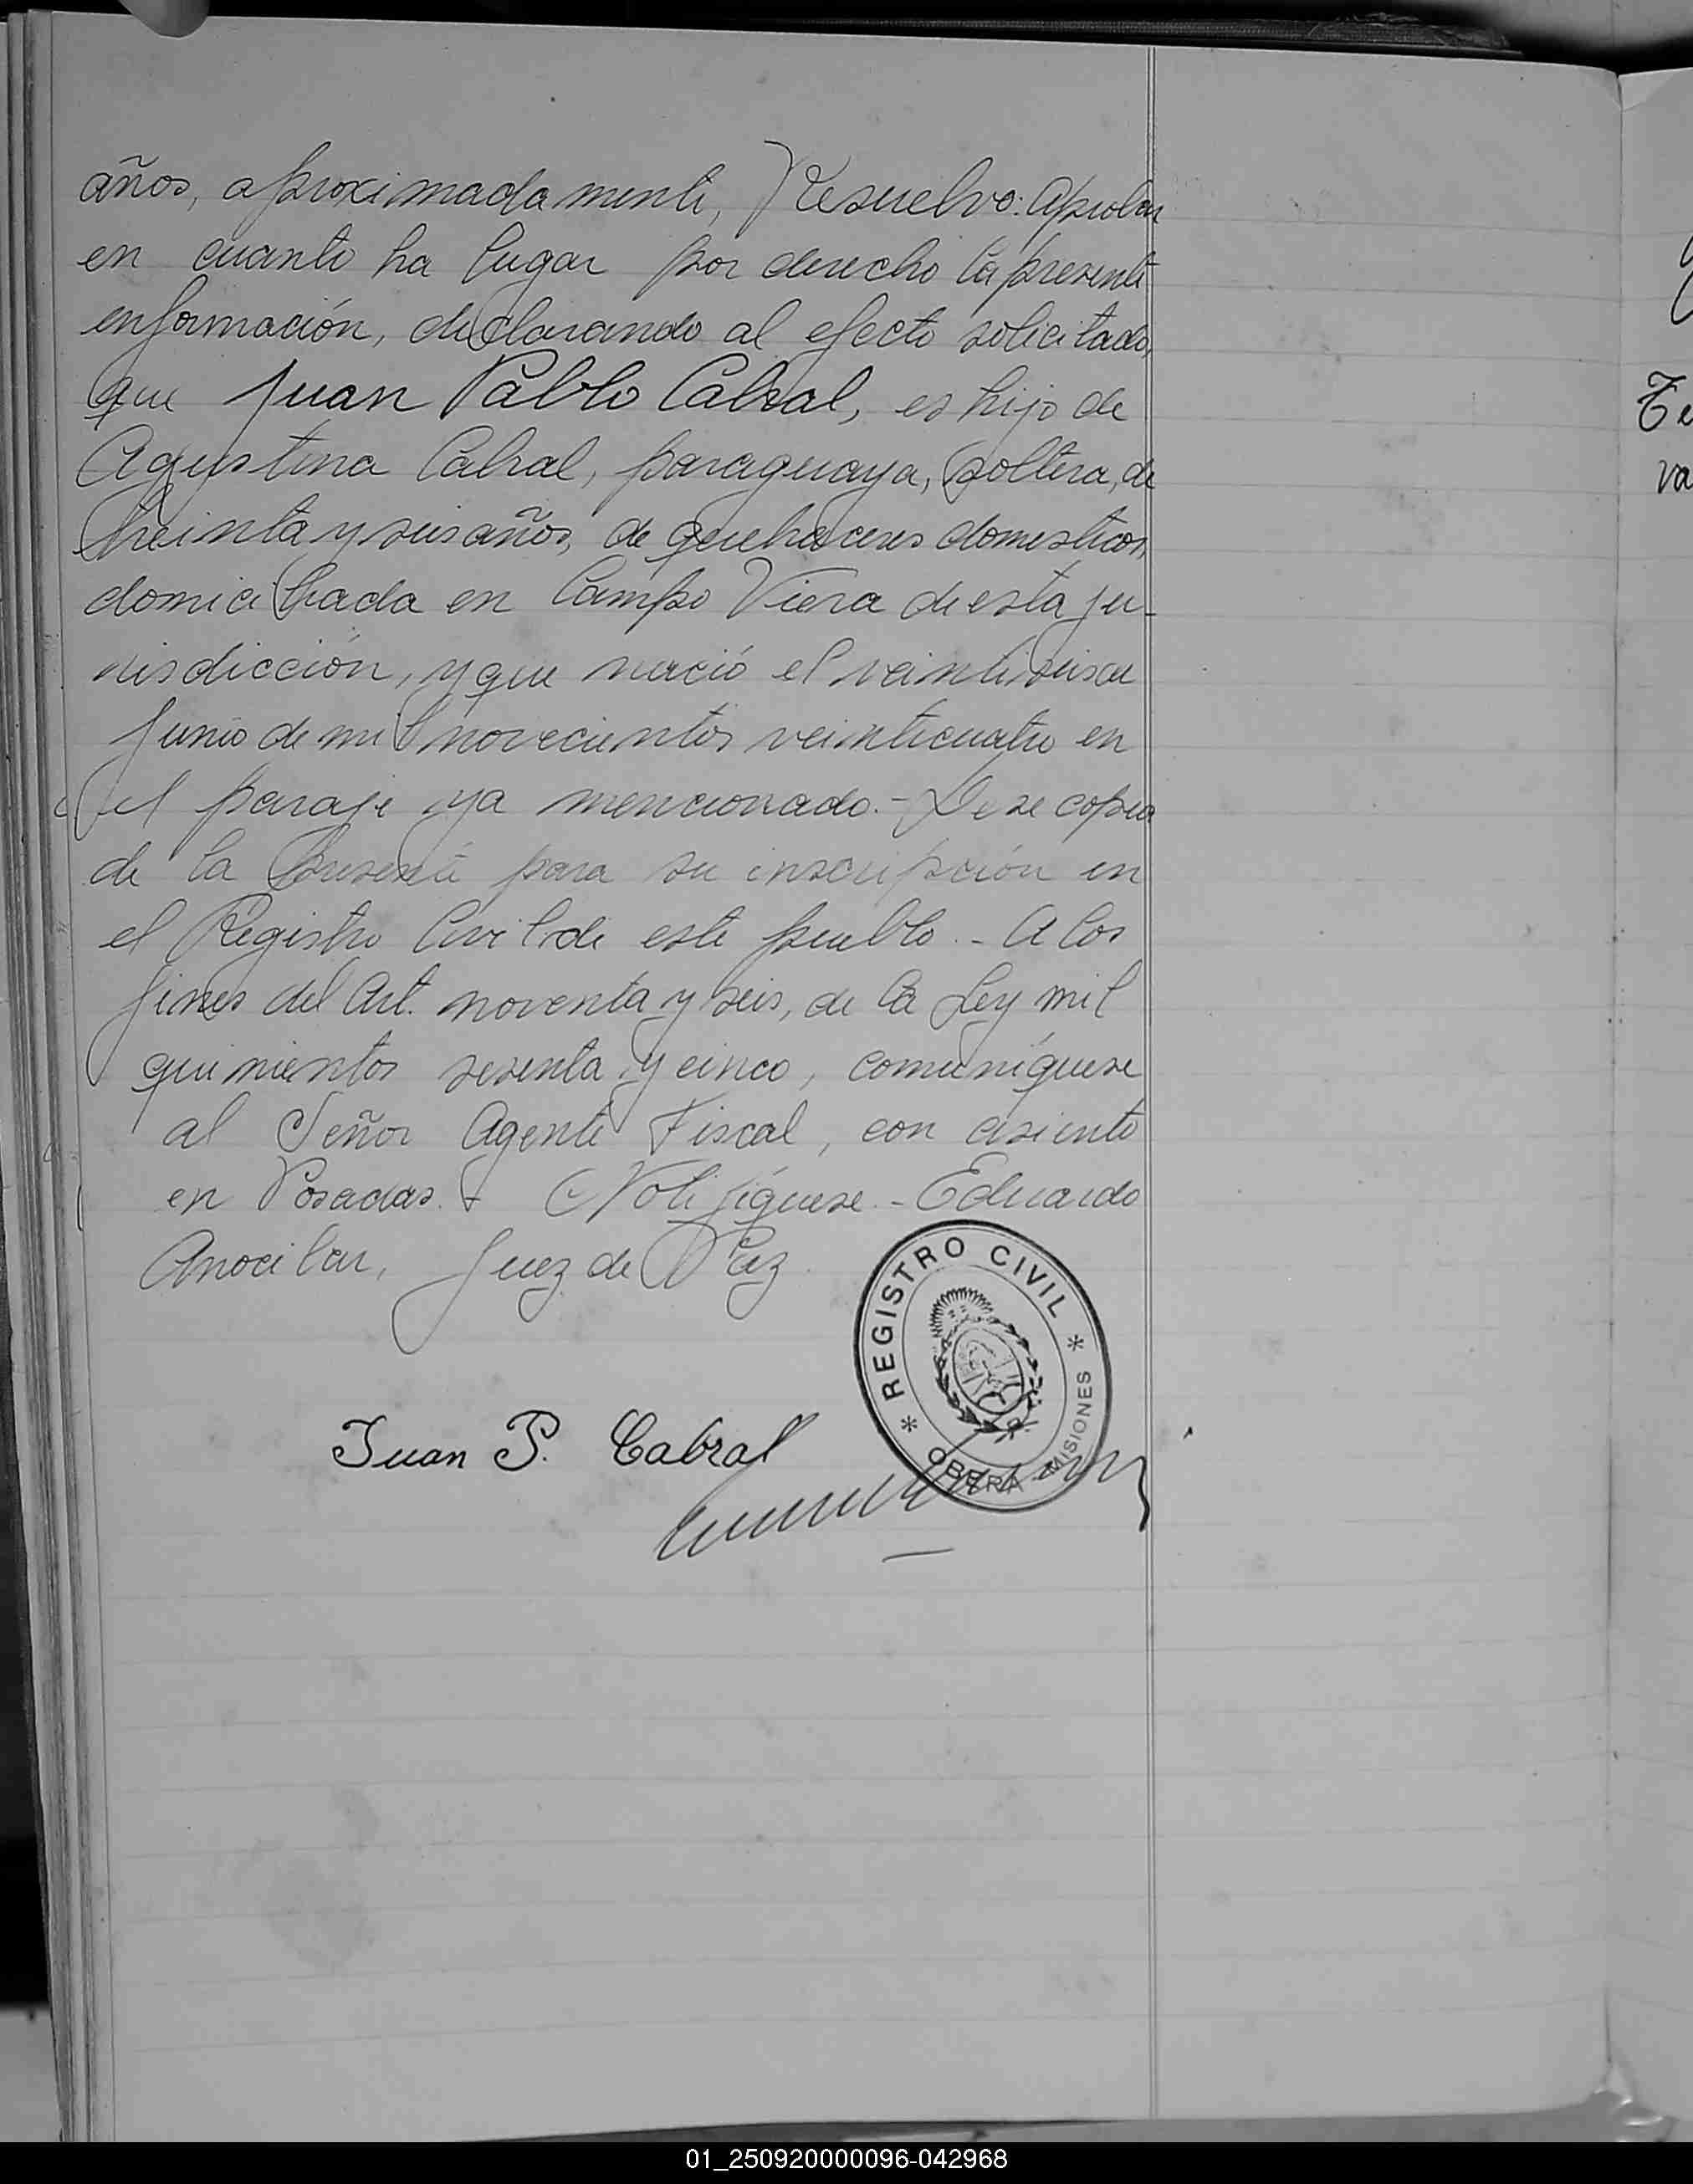 años, aproximadamente, Resuelvo: Aprobar
en cuanto ha lugar por derecho la presente
enformación, declarando al efecto solicitado,
que Juan Pablo Cabral, es hijo de
Agustina Cabral, paraguaya, soltera, de
treinta y seis años, de quehaceres domesticos,
domiciliada en Campo Viera de esta ju-
risdicción, y que nació el veintiseis de
Junio de mil novecientos veinticuatro en
el paraje ya mencionado.- Dese copia
de la presente para su inscripción en
el Registro Civil de este pueblo.- A los
fines del Art. noventa y seis, de la Ley mil
quinientos sesenta y cinco, comuníquese
al Señor Agente Fiscal, con asiento
en Posadas.- Notifíquese.- Eduardo
Juez de Paz.
Juan P. Cabral
* REGISTRO CIVIL *
OBERA MISIONES
Te
va
01_250920000096-042968